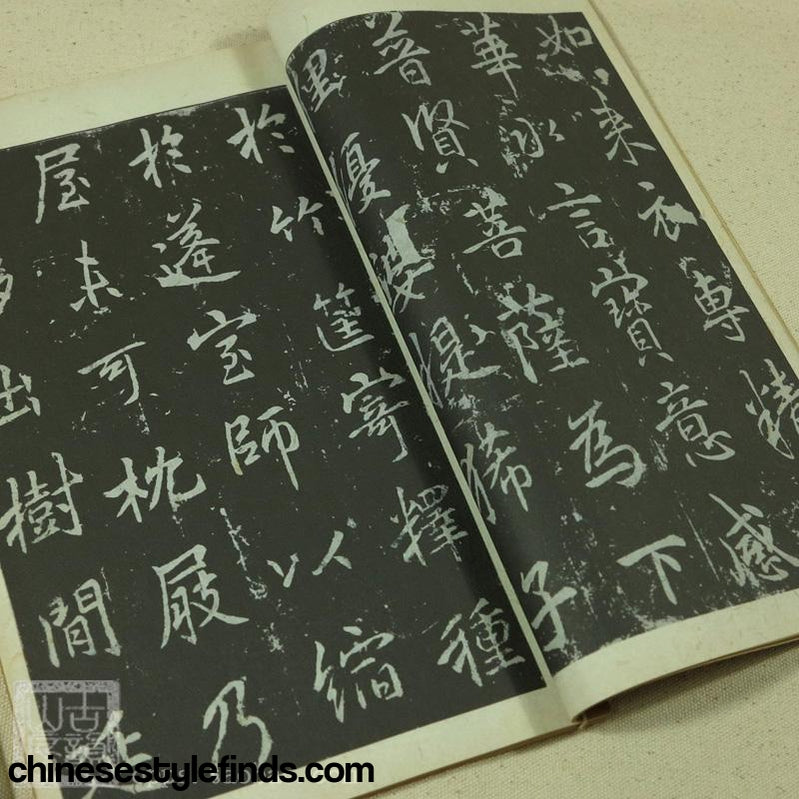 如來衣專精
華水言寶意感
普賢菩薩為下
里優婆提狶子
於竹筐寄釋種
於蓬室師以縮
屋未可枕屐乃
出樹間
chinesestylefinds.com